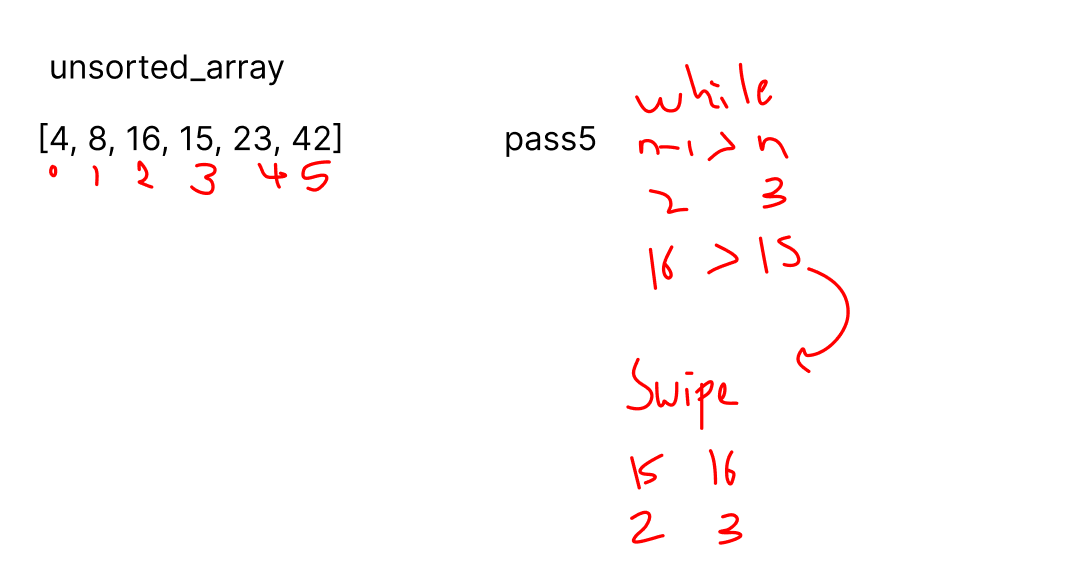 unsorted_array
[4, 8, 16, 15, 23, 42]
0 1 2 3 4 5
pass5
while
n-1 > n
2 3
16 > 15
Swipe
15 16
2 3